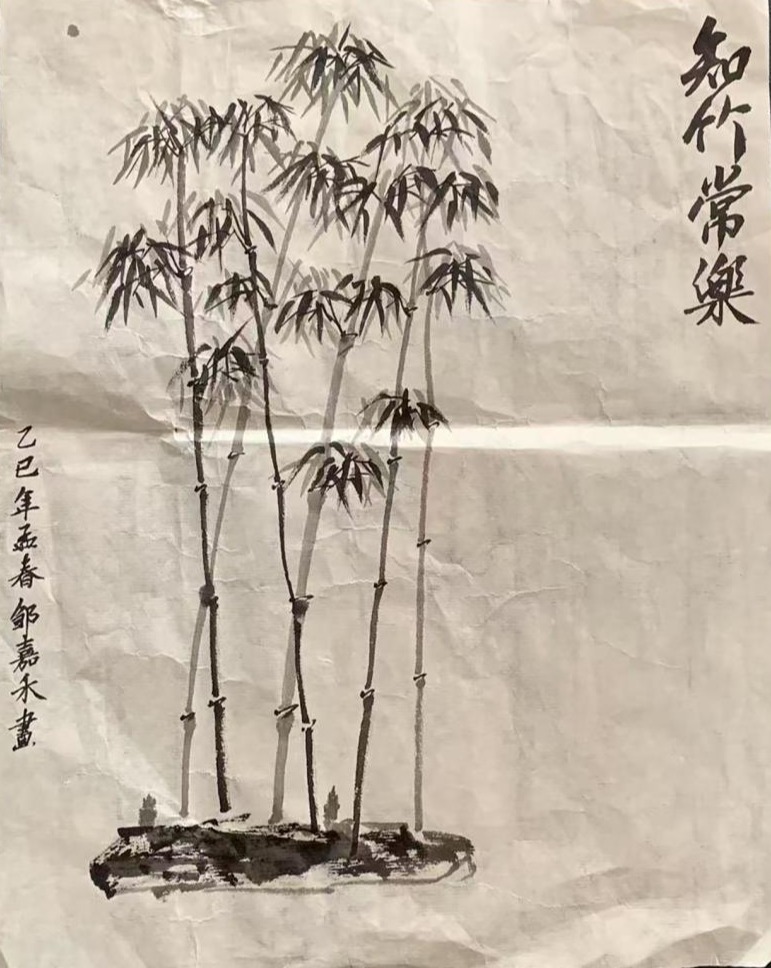 知竹常樂
乙巳年孟春鄒嘉禾畫